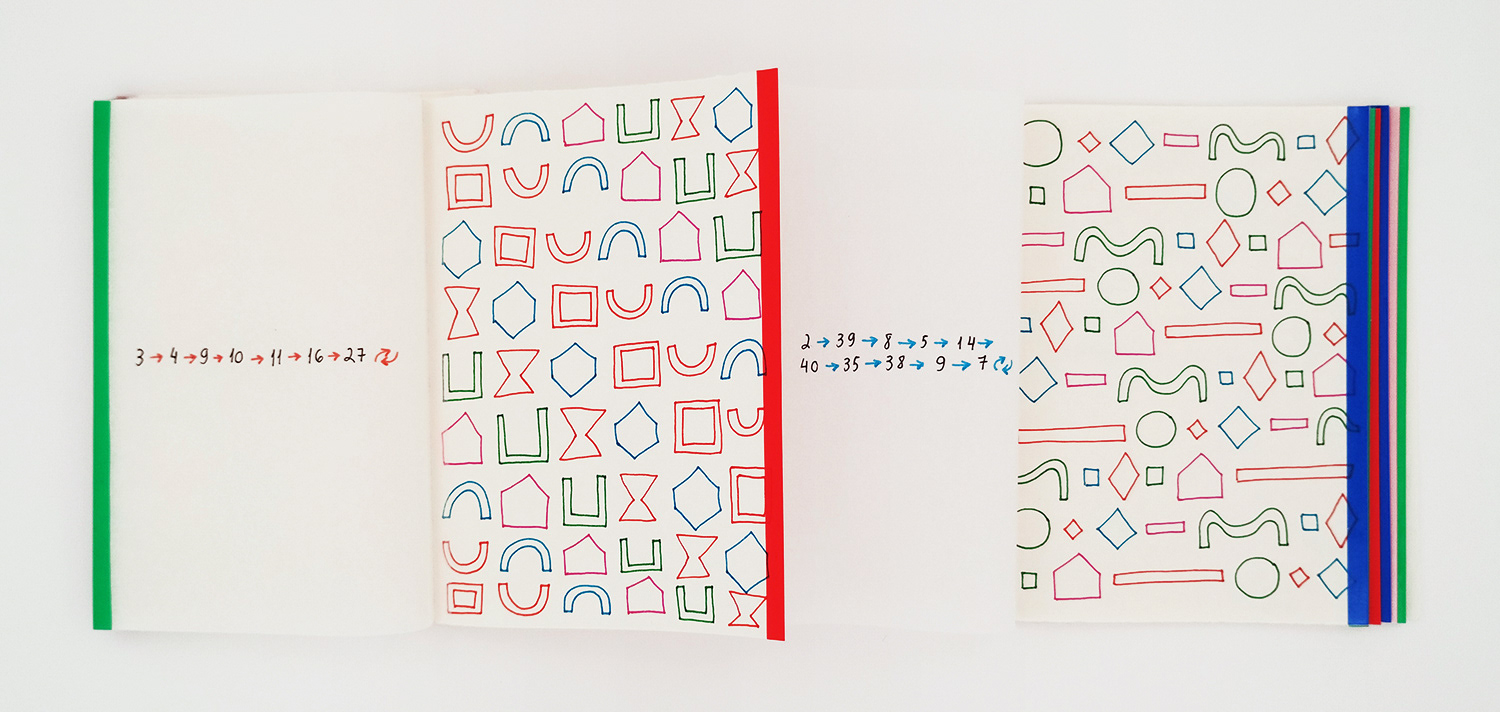 3 → 4 → 9 → 10 → 11 → 16 → 27 🔁
2 → 39 → 8 → 5 → 14 →
40 → 35 → 38 → 9 → 7 🔁